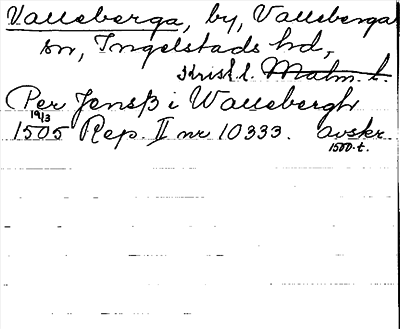 Valleberga, by, Valleberga
sn, Ingelstads hd,
Krist l. Malm. l.
Per Jensß i Wallebergh
19/3
1505 Rep. II nr 10333. avskr.
1500-t.